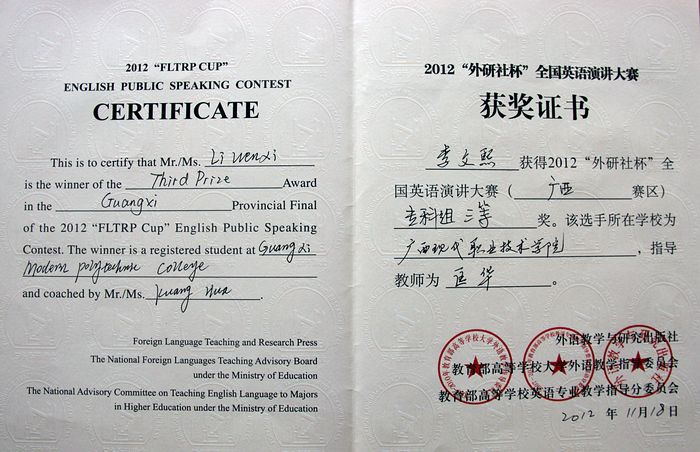 2012 “FLTRP CUP”
ENGLISH PUBLIC SPEAKING CONTEST
CERTIFICATE
This is to certify that Mr./Ms. Li Wenxi
is the winner of the Third Prize Award
in the Guangxi Provincial Final
of the 2012 “FLTRP Cup” English Public Speaking
Contest. The winner is a registered student at Guangxi
Modern polytechnic College
and coached by Mr./Ms. Kuang Hua.
Foreign Language Teaching and Research Press
The National Foreign Languages Teaching Advisory Board
under the Ministry of Education
The National Advisory Committee on Teaching English Language to Majors
in Higher Education under the Ministry of Education
2012 “外研社杯” 全国英语演讲大赛
获奖证书
李文熙 获得2012 “外研社杯” 全
国英语演讲大赛（广西 赛区）
专科组 三等 奖。该选手所在学校为
广西现代职业技术学院，指导
教师为 匡华。
外语教学与研究出版社
教育部高等学校大学外语教学指导委员会
教育部高等学校英语专业教学指导分委员会
2012 年 11月18日